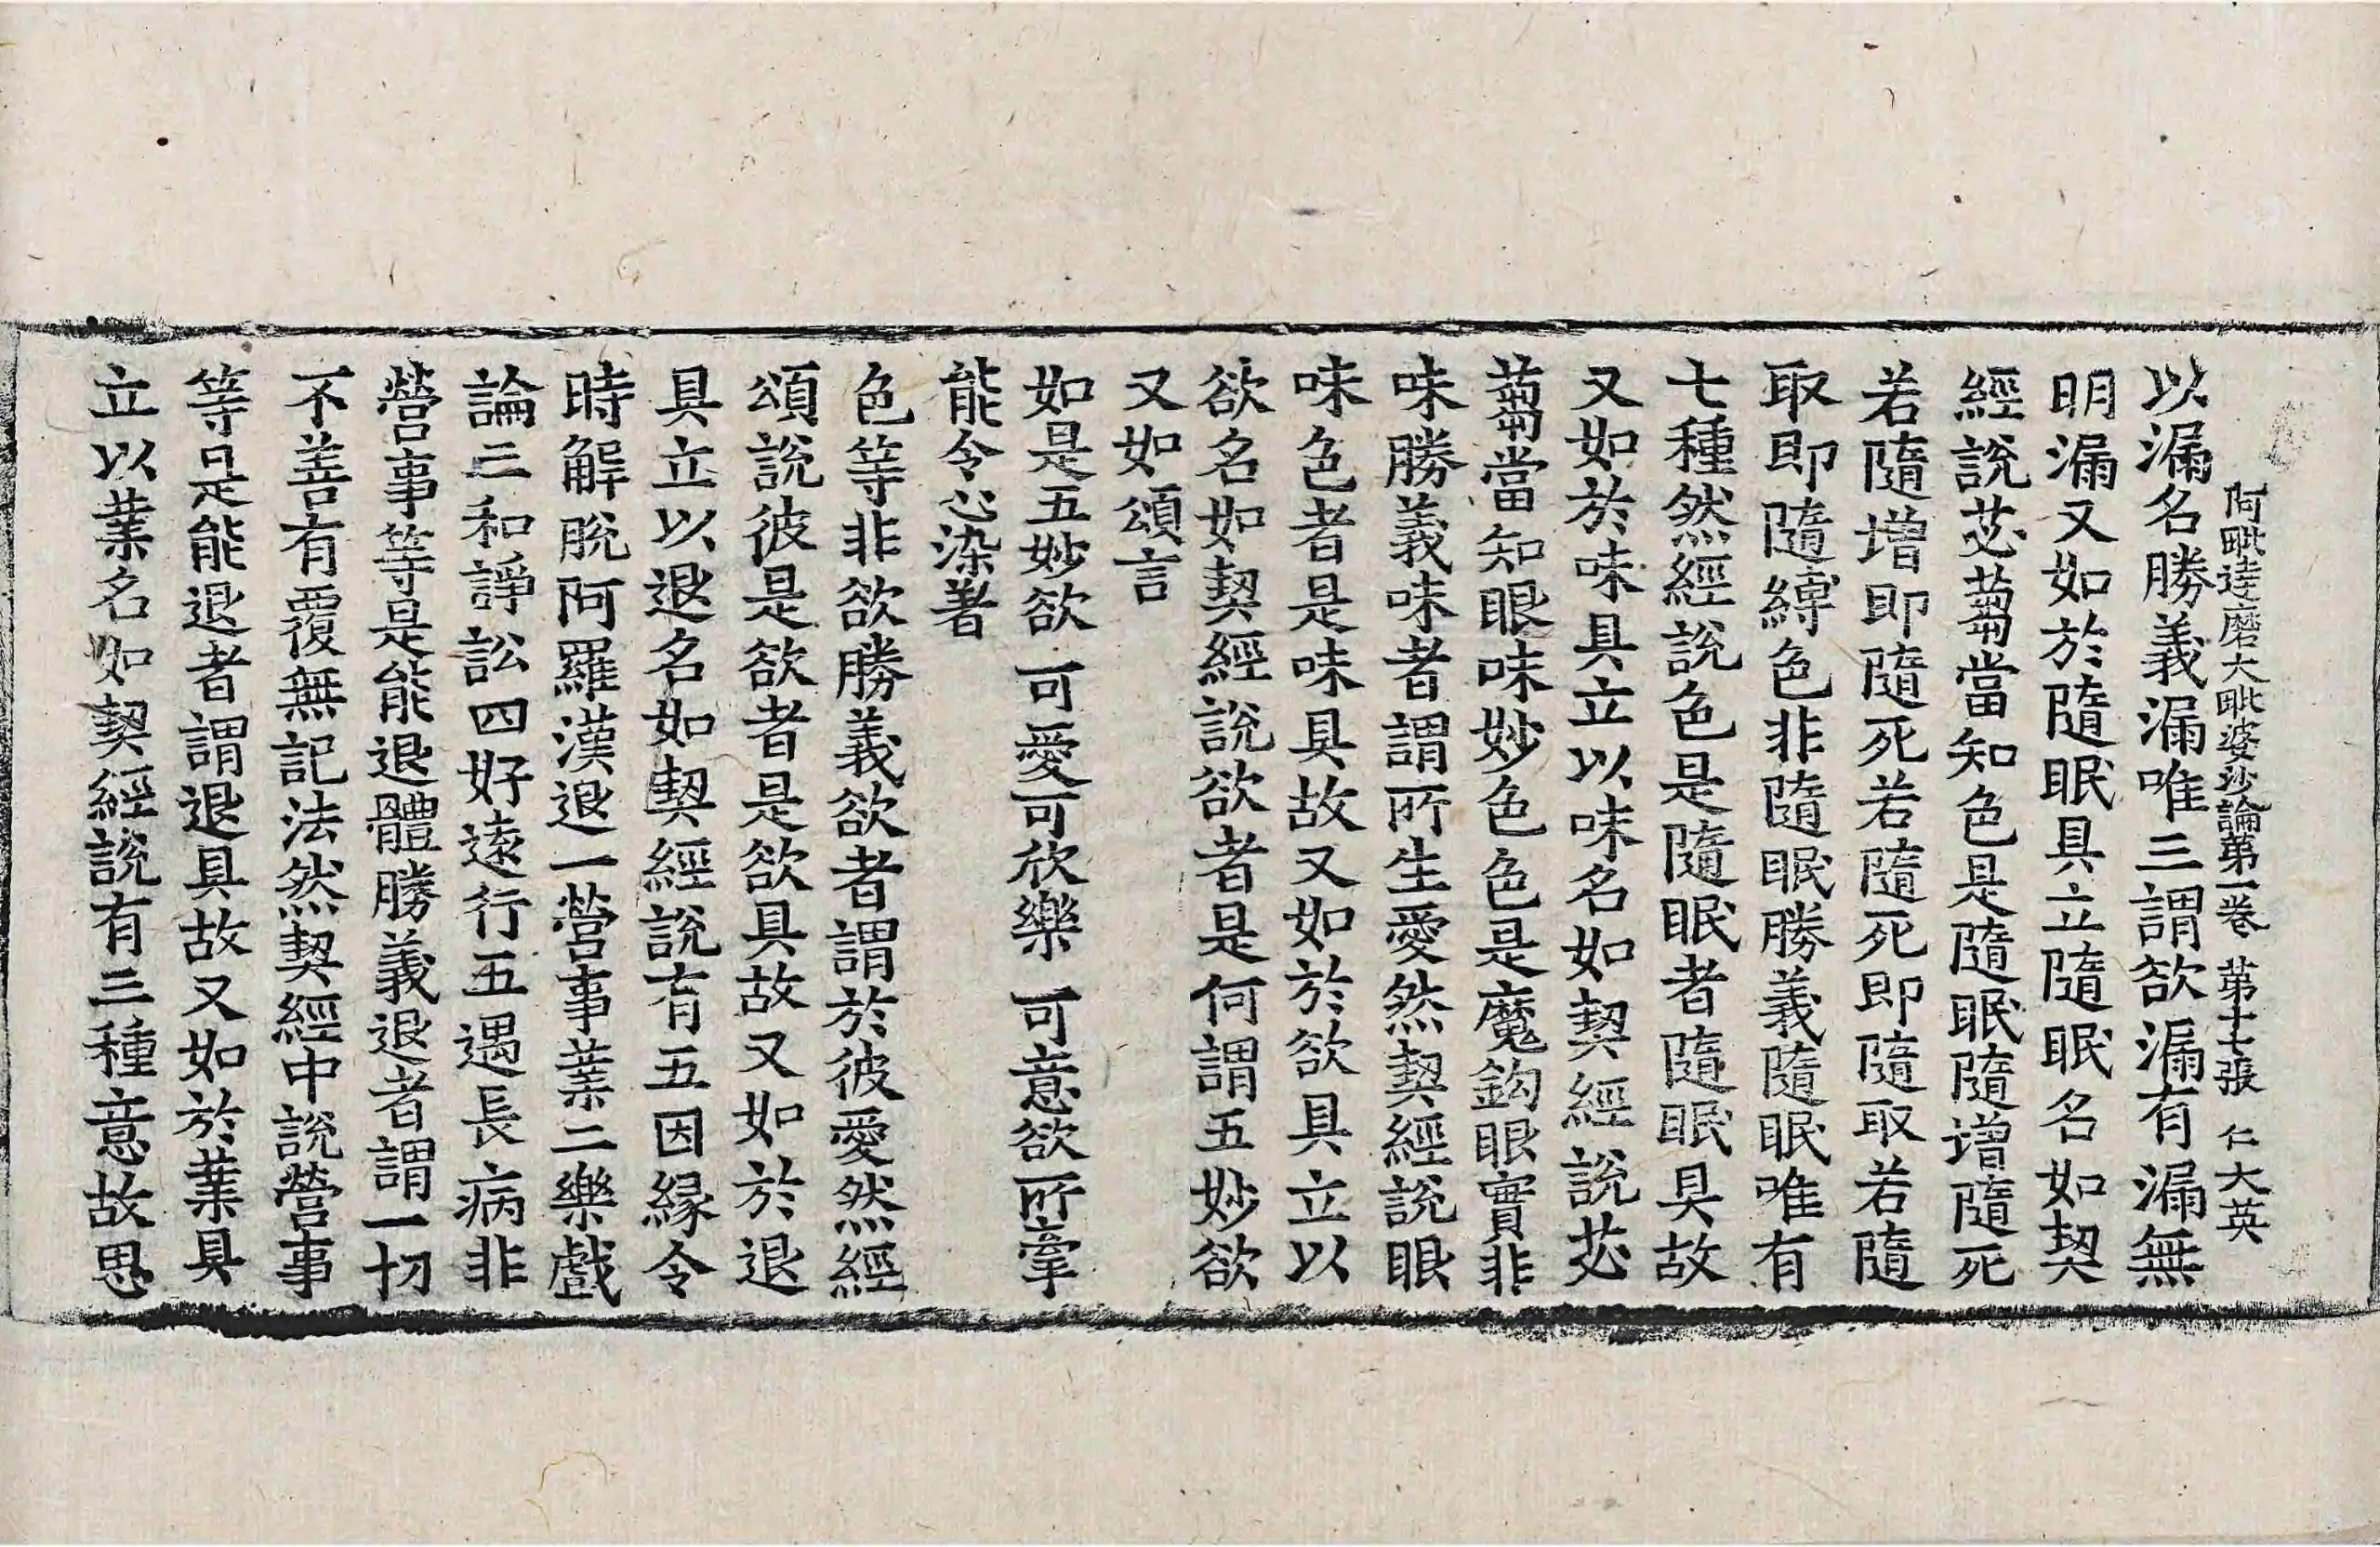 阿毗達磨大毗婆沙論第一卷 第十七張 仁 大英
以漏名勝義漏唯三謂欲漏有漏無
明漏又如於隨眠具立隨眠名如契
經說苾蒭當知色是隨眠隨增隨死
若隨增即隨死若隨死即隨取若隨
取即隨縛色非隨眠勝義隨眠唯有
七種然經說色是隨眠者隨眠具故
又如於味具立以味名如契經說苾
蒭當知眼味妙色色是魔鉤眼實非
味勝義味者謂所生愛然契經說眼
味色者是味具故又如於欲具立以
欲名如契經說欲者是何謂五妙欲
又如頌言
如是五妙欲 可愛可欣樂 可意欲所牽
能令心染著
色等非欲勝義欲者謂於彼愛然經
頌說彼是欲者是欲具故又如於退
具立以退名如契經說有五因緣令
時解脫阿羅漢退一營事業二樂戲
論三和諍訟四好遠行五遇長病非
營事等是能退體勝義退者謂一切
不善有覆無記法然契經中說營事
等是能退者謂退具故又如於業具
立以業名如契經說有三種意故思